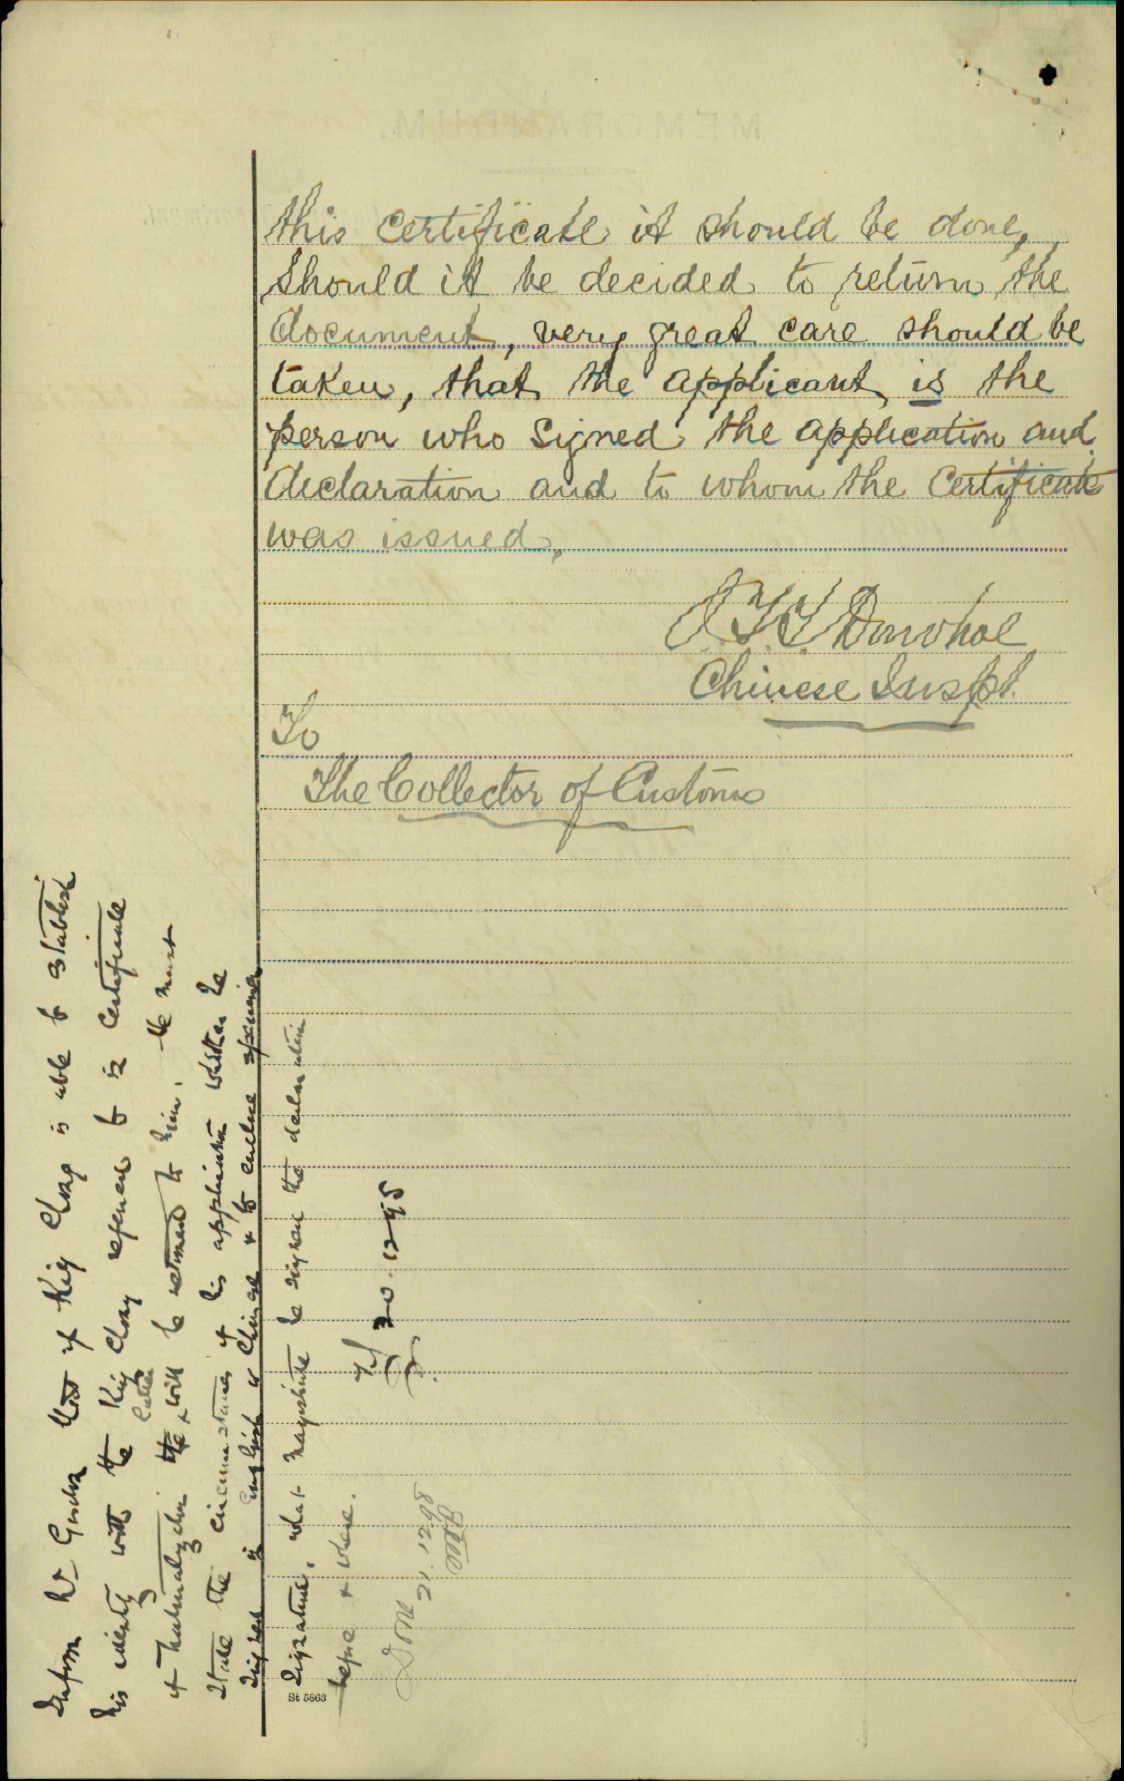 this Certificate it should be done,
Should it be decided to return the
document, very great care should be
taken, that the applicant, is the
person who signed the application and
declaration and to whom the Certificate
was issued,
Donohoe
Chinese Inspt.
To
The Collector of Customs
Inform Mr Gordon that if King Chong is able to establish
his identity with the King Chong referred to in Certificate
of Naturalization the latter will be returned to him. He must
state the circumstances of his application whether he
signed in English or Chinese & to enclose specimen
signature. what magistrate he signed the declaration
before & where.
20.12.98
Done
21.12.98
St 5863